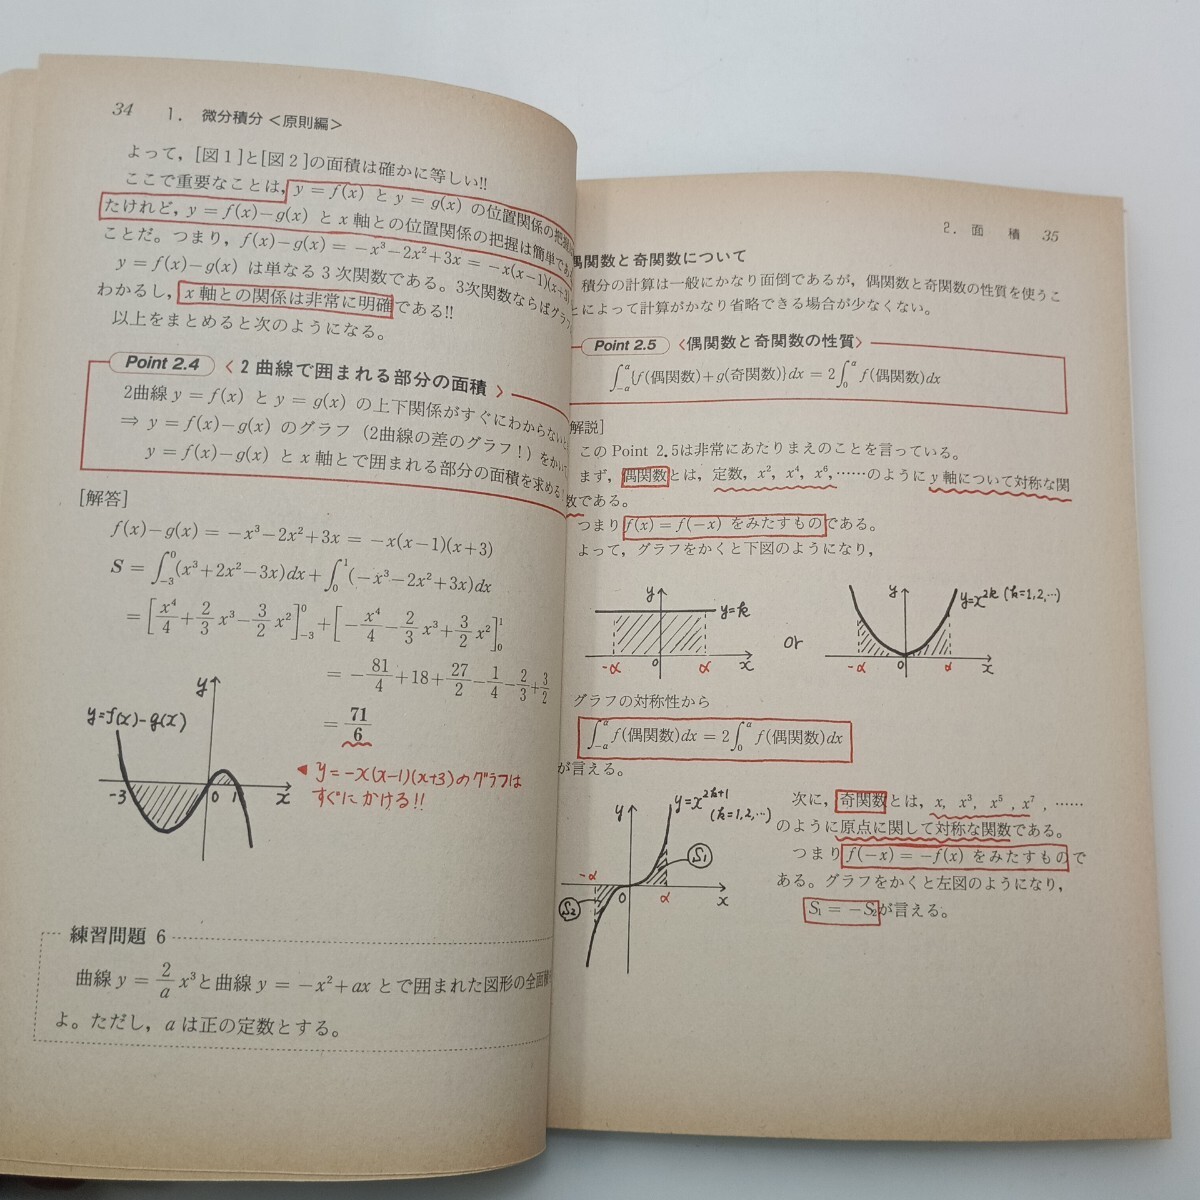 34 1. 微分積分<原則編>
よって，[図1]と[図2]の面積は確かに等しい!!
ここで重要なことは，y＝f(x) と y＝g(x) の位置関係の把握
たけれど，y＝f(x)−g(x) と x 軸との位置関係の把握は簡単であ
ことだ。つまり，f(x)−g(x)＝−x³−2x²+3x＝−x(x−1)(x+3)
y＝f(x)−g(x) は単なる3次関数である。3次関数ならばグラフ
わかるし，x 軸との関係は非常に明確である!!
以上をまとめると次のようになる。
Point 2.4 〈2曲線で囲まれる部分の面積〉
2曲線 y＝f(x) と y＝g(x) の上下関係がすぐにわからない
⇒ y＝f(x)−g(x) のグラフ（2曲線の差のグラフ！）をかい
y＝f(x)−g(x) と x 軸とで囲まれる部分の面積を求める
[解答]
f(x)−g(x)＝−x³−2x²+3x＝−x(x−1)(x+3)
S＝∫₋₃⁰(x³+2x²−3x)dx+∫₀¹(−x³−2x²+3x)dx
＝[x⁴/4+2/3 x³−3/2 x²]₋₃⁰+[−x⁴/4−2/3 x³+3/2 x²]₀¹
＝−81/4+18+27/2−1/4−2/3+3/2
＝71/6
y=f(x)-g(x)
y
-3 0 1 x
◀ y=-x(x-1)(x+3)のグラフは
すぐにかける!!
練習問題 6
曲線 y＝2/a x³と曲線 y＝−x²+ax とで囲まれた図形の全面積
よ。ただし，a は正の定数とする。
2. 面 積 35
偶関数と奇関数について
積分の計算は一般にかなり面倒であるが，偶関数と奇関数の性質を使うこ
とによって計算がかなり省略できる場合が少なくない。
Point 2.5 〈偶関数と奇関数の性質〉
∫₋ₐᵃ{f(偶関数)+g(奇関数)}dx＝2∫₀ᵃ f(偶関数)dx
解説]
このPoint 2.5は非常にあたりまえのことを言っている。
まず，偶関数とは，定数，x²，x⁴，x⁶，……のように y 軸について対称な関
数である。
つまり f(x)＝f(−x) をみたすものである。
よって，グラフをかくと下図のようになり，
y
y=k
-α 0 α x
or
y
y=x²ᵏ (k=1,2,…)
-α 0 α x
グラフの対称性から
∫₋ₐᵃ f(偶関数)dx＝2∫₀ᵃ f(偶関数)dx
が言える。
y
y=x²ᵏ⁺¹
(k=1,2,…)
S₁
-α 0 α x
S₂
次に，奇関数とは，x，x³，x⁵，x⁷，……
のように原点に関して対称な関数である。
つまり f(−x)＝−f(x) をみたすもので
ある。グラフをかくと左図のようになり，
S₁＝−S₂が言える。